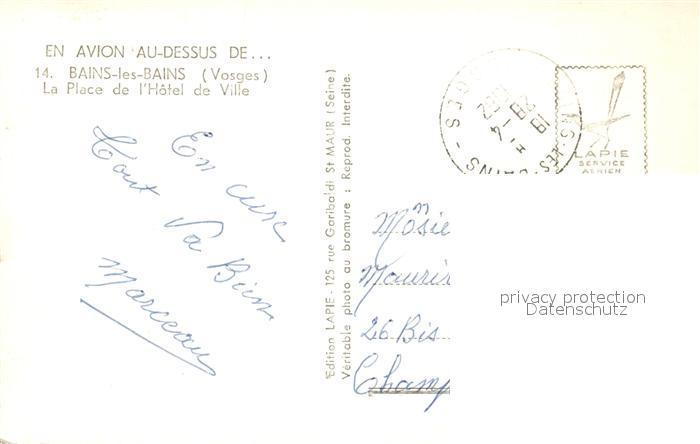 EN AVION AU-DESSUS DE...
14. BAINS-les-BAINS (Vosges)
La Place de l'Hôtel de Ville
En cure
Tout Va Bien
Marceau
Edition LAPIE - 125 rue Garibaldi St MAUR (Seine)
Véritable photo au bromure : Reprod. Interdite.
LAPIE
SERVICE
AERIEN
26 Bis
Champ
privacy protection
Datenschutz